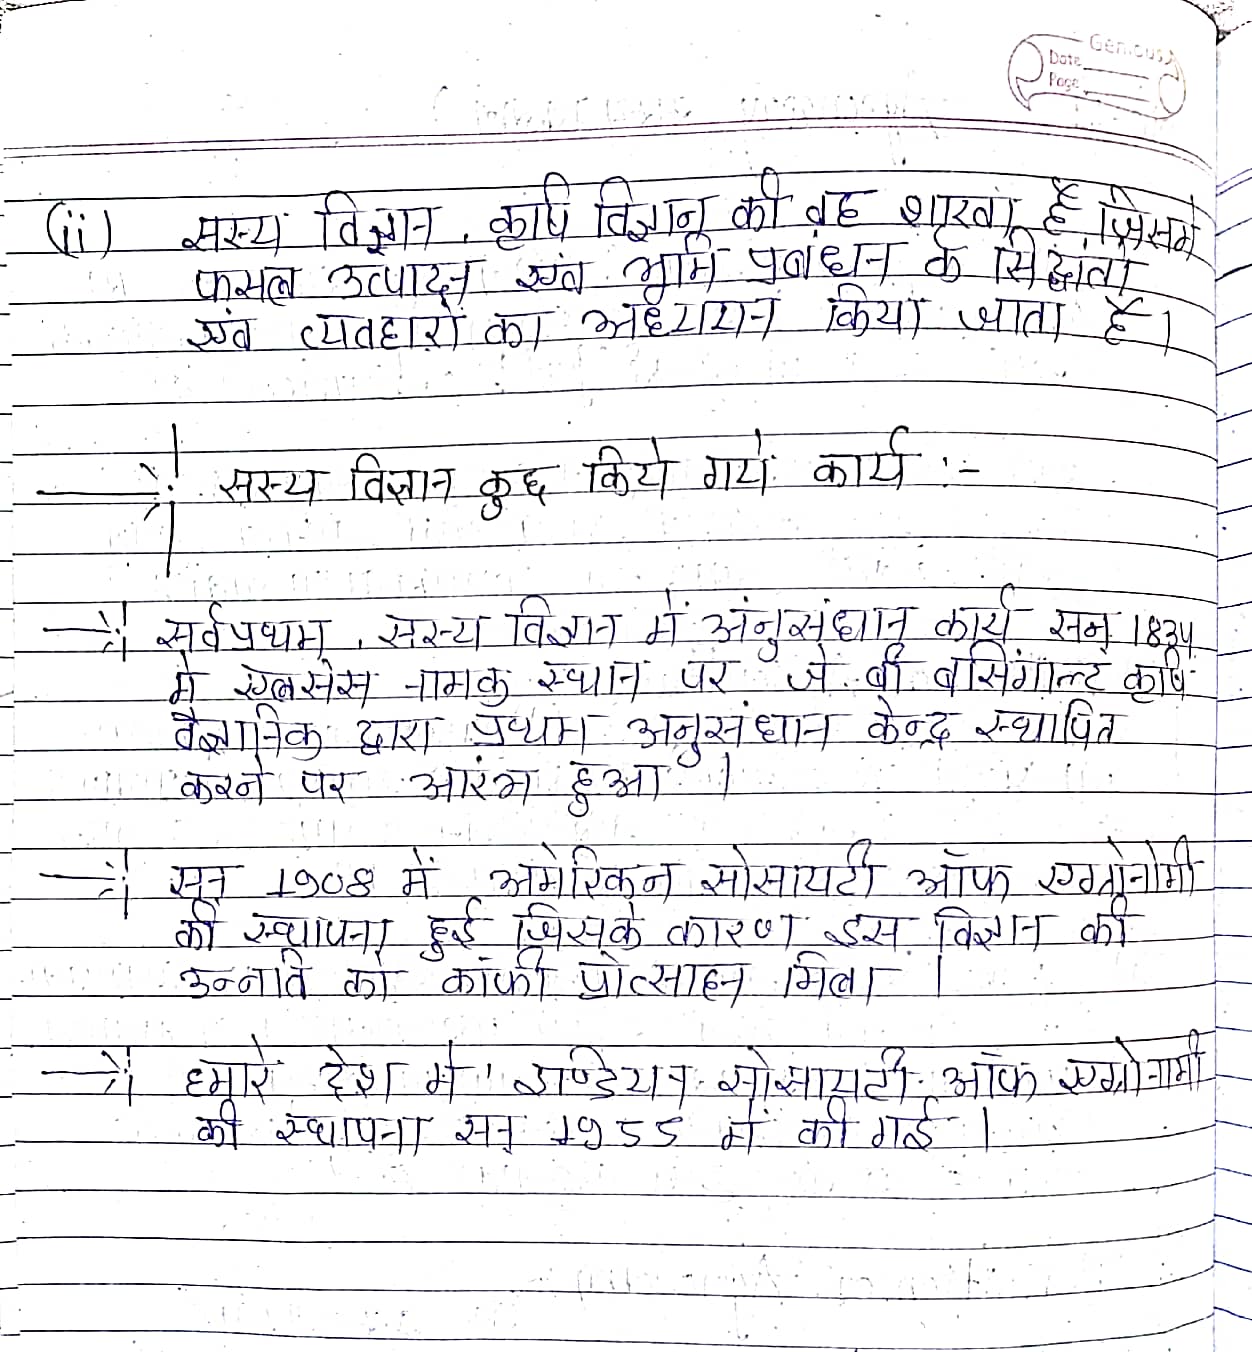 Genious
Date
Page
(ii) सस्य विज्ञान, कृषि विज्ञान की वह शाखा है जिसमे
फसल उत्पादन एवं भूमि प्रबंधन के सिद्धांतो
एवं व्यवहारों का अध्ययन किया जाता है।
→ सस्य विज्ञान कुछ किये गये कार्य :-
→ सर्वप्रथम, सस्य विज्ञान में अंनुसंधान कार्य सन् 1834
मे एलसेस नामक स्थान पर जे. बी बसिंगाल्ट कृषि
वैज्ञानिक द्वारा प्रथम अनुसंधान केन्द्र स्थापित
करने पर आरंभ हुआ।
→ सन् 1908 में अमेरिकन सोसायटी ऑफ एग्रोनोमी
की स्थापना हुई जिसके कारण इस विज्ञान की
उन्नति को काफी प्रोत्साहन मिला।
→ हमारे देश मे' इण्डियन सोसायटी ऑफ एग्रोनामी
की स्थापना सन् 1955 में की गई।